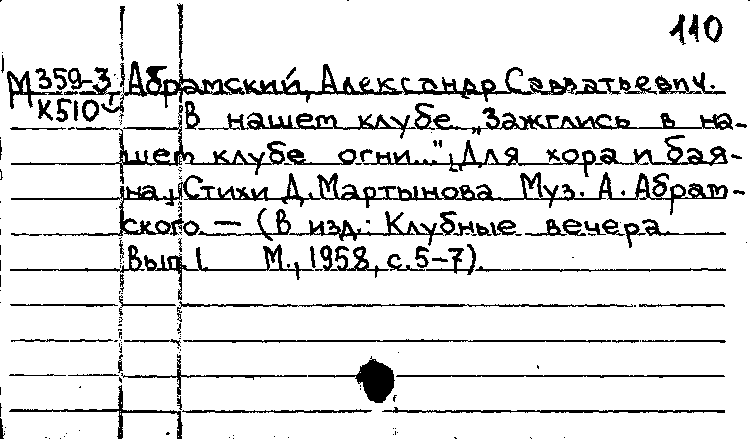 110
М 359-3 Абрамский, Александр Савватьевич.
К510
В нашем клубе. „Зажглись в на-
шем клубе огни..." [Для хора и бая-
на.] Стихи Д. Мартынова Муз. А. Абрам-
ского. — (В изд.: Клубные вечера.
Вып. 1. М., 1958, с. 5-7).